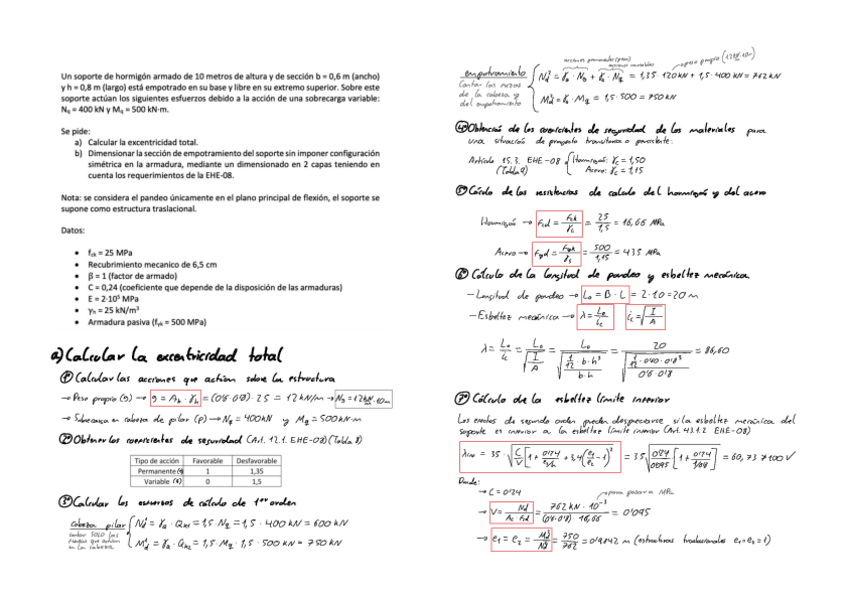 Un soporte de hormigón armado de 10 metros de altura y de sección b = 0,6 m (ancho)
y h = 0,8 m (largo) está empotrado en su base y libre en su extremo superior. Sobre este
soporte actúan los siguientes esfuerzos debido a la acción de una sobrecarga variable:
Nq = 400 kN y Mq = 500 kN·m.
Se pide:
a) Calcular la excentricidad total.
b) Dimensionar la sección de empotramiento del soporte sin imponer configuración
simétrica en la armadura, mediante un dimensionado en 2 capas teniendo en
cuenta los requerimientos de la EHE-08.
Nota: se considera el pandeo únicamente en el plano principal de flexión, el soporte se
supone como estructura traslacional.
Datos:
• fck = 25 MPa
• Recubrimiento mecanico de 6,5 cm
• β = 1 (factor de armado)
• C = 0,24 (coeficiente que depende de la disposición de las armaduras)
• E = 2·10⁵ MPa
• γh = 25 kN/m³
• Armadura pasiva (fyk = 500 MPa)
a) Calcular la excentricidad total
1º Calcular las acciones que actúan sobre la estructura
→ Peso propio (g) → g = Ah · γh = (0'6·0'8)·25 = 12 kN/m → Ng = 12kN·10m
→ Sobrecarga en cabeza de pilar (p) → Nq = 400kN y Mq = 500kN·m
2º Obtener los coeficientes de seguridad (Art. 12.1. EHE-08) (Tabla 8)
Tipo de acción Favorable Desfavorable
Permanente (g) 1 1,35
Variable (q) 0 1,5
3º Calcular los esfuerzos de cálculo de 1er orden
cabeza pilar Nd¹ = γq · Qk1 = 1,5 · Nq = 1,5 · 400 kN = 600 kN
Md¹ = γq · Qk2 = 1,5 · Mq = 1,5 · 500 kN = 750 kN
empotramiento Nd² = γg · Ng + γq · Nq = 1,35 · 120kN + 1,5 · 400 kN = 762 kN
Md² = γq · Mq = 1,5 · 500 = 750 kN
peso propio (12kN·10m)
4º Obtención de los coeficientes de seguridad de los materiales para
una situación de proyecto transitoria o persistente:
Artículo 15.3. EHE-08 Hormigón: γc = 1,50
(Tabla 9) Acero: γs = 1,15
5º Cálculo de las resistencias de calculo del hormigón y del acero
Hormigón → fcd = fck/γc = 25/1,5 = 16,66 MPa
Acero → fyd = fyk/γs = 500/1,15 = 435 MPa
6º Cálculo de la longitud de pandeo y esbeltez mecánica
- Longitud de pandeo → Lo = β · L = 2·10 = 20 m
- Esbeltez mecánica → λ = Lo/ic ic = √(I/A)
λ = Lo/ic = Lo/√(I/A) = Lo/√((1/12 · b · h³)/(b·h)) = 20/√((1/12 · 0'60 · 0'8³)/(0'6·0'8)) = 86,60
7º Cálculo de la esbeltez límite inferior
Los efectos de segundo orden pueden despreciarse si la esbeltez mecánica del
soporte es inferior a la esbeltez límite inferior (Art. 43.1.2 EHE-08)
λinf = 35 · √(C/V [1 + 0'24/(e2/h) + 3,4(e1/e2 - 1)²]) = 35 √(0'24/0'095 [1 + 0'24/(1'08)]) = 60,73 >100 V
Donde:
→ C = 0'24
→ V = Nd/(Ac · fcd) = 762 kN · 10⁻³/((0'6·0'8) 16,66) = 0'095
para pasar a MPa
→ e1 = e2 = Md²/Nd² = 750/762 = 0'9842 m (estructuras traslacionales e1 = e2 = 1)